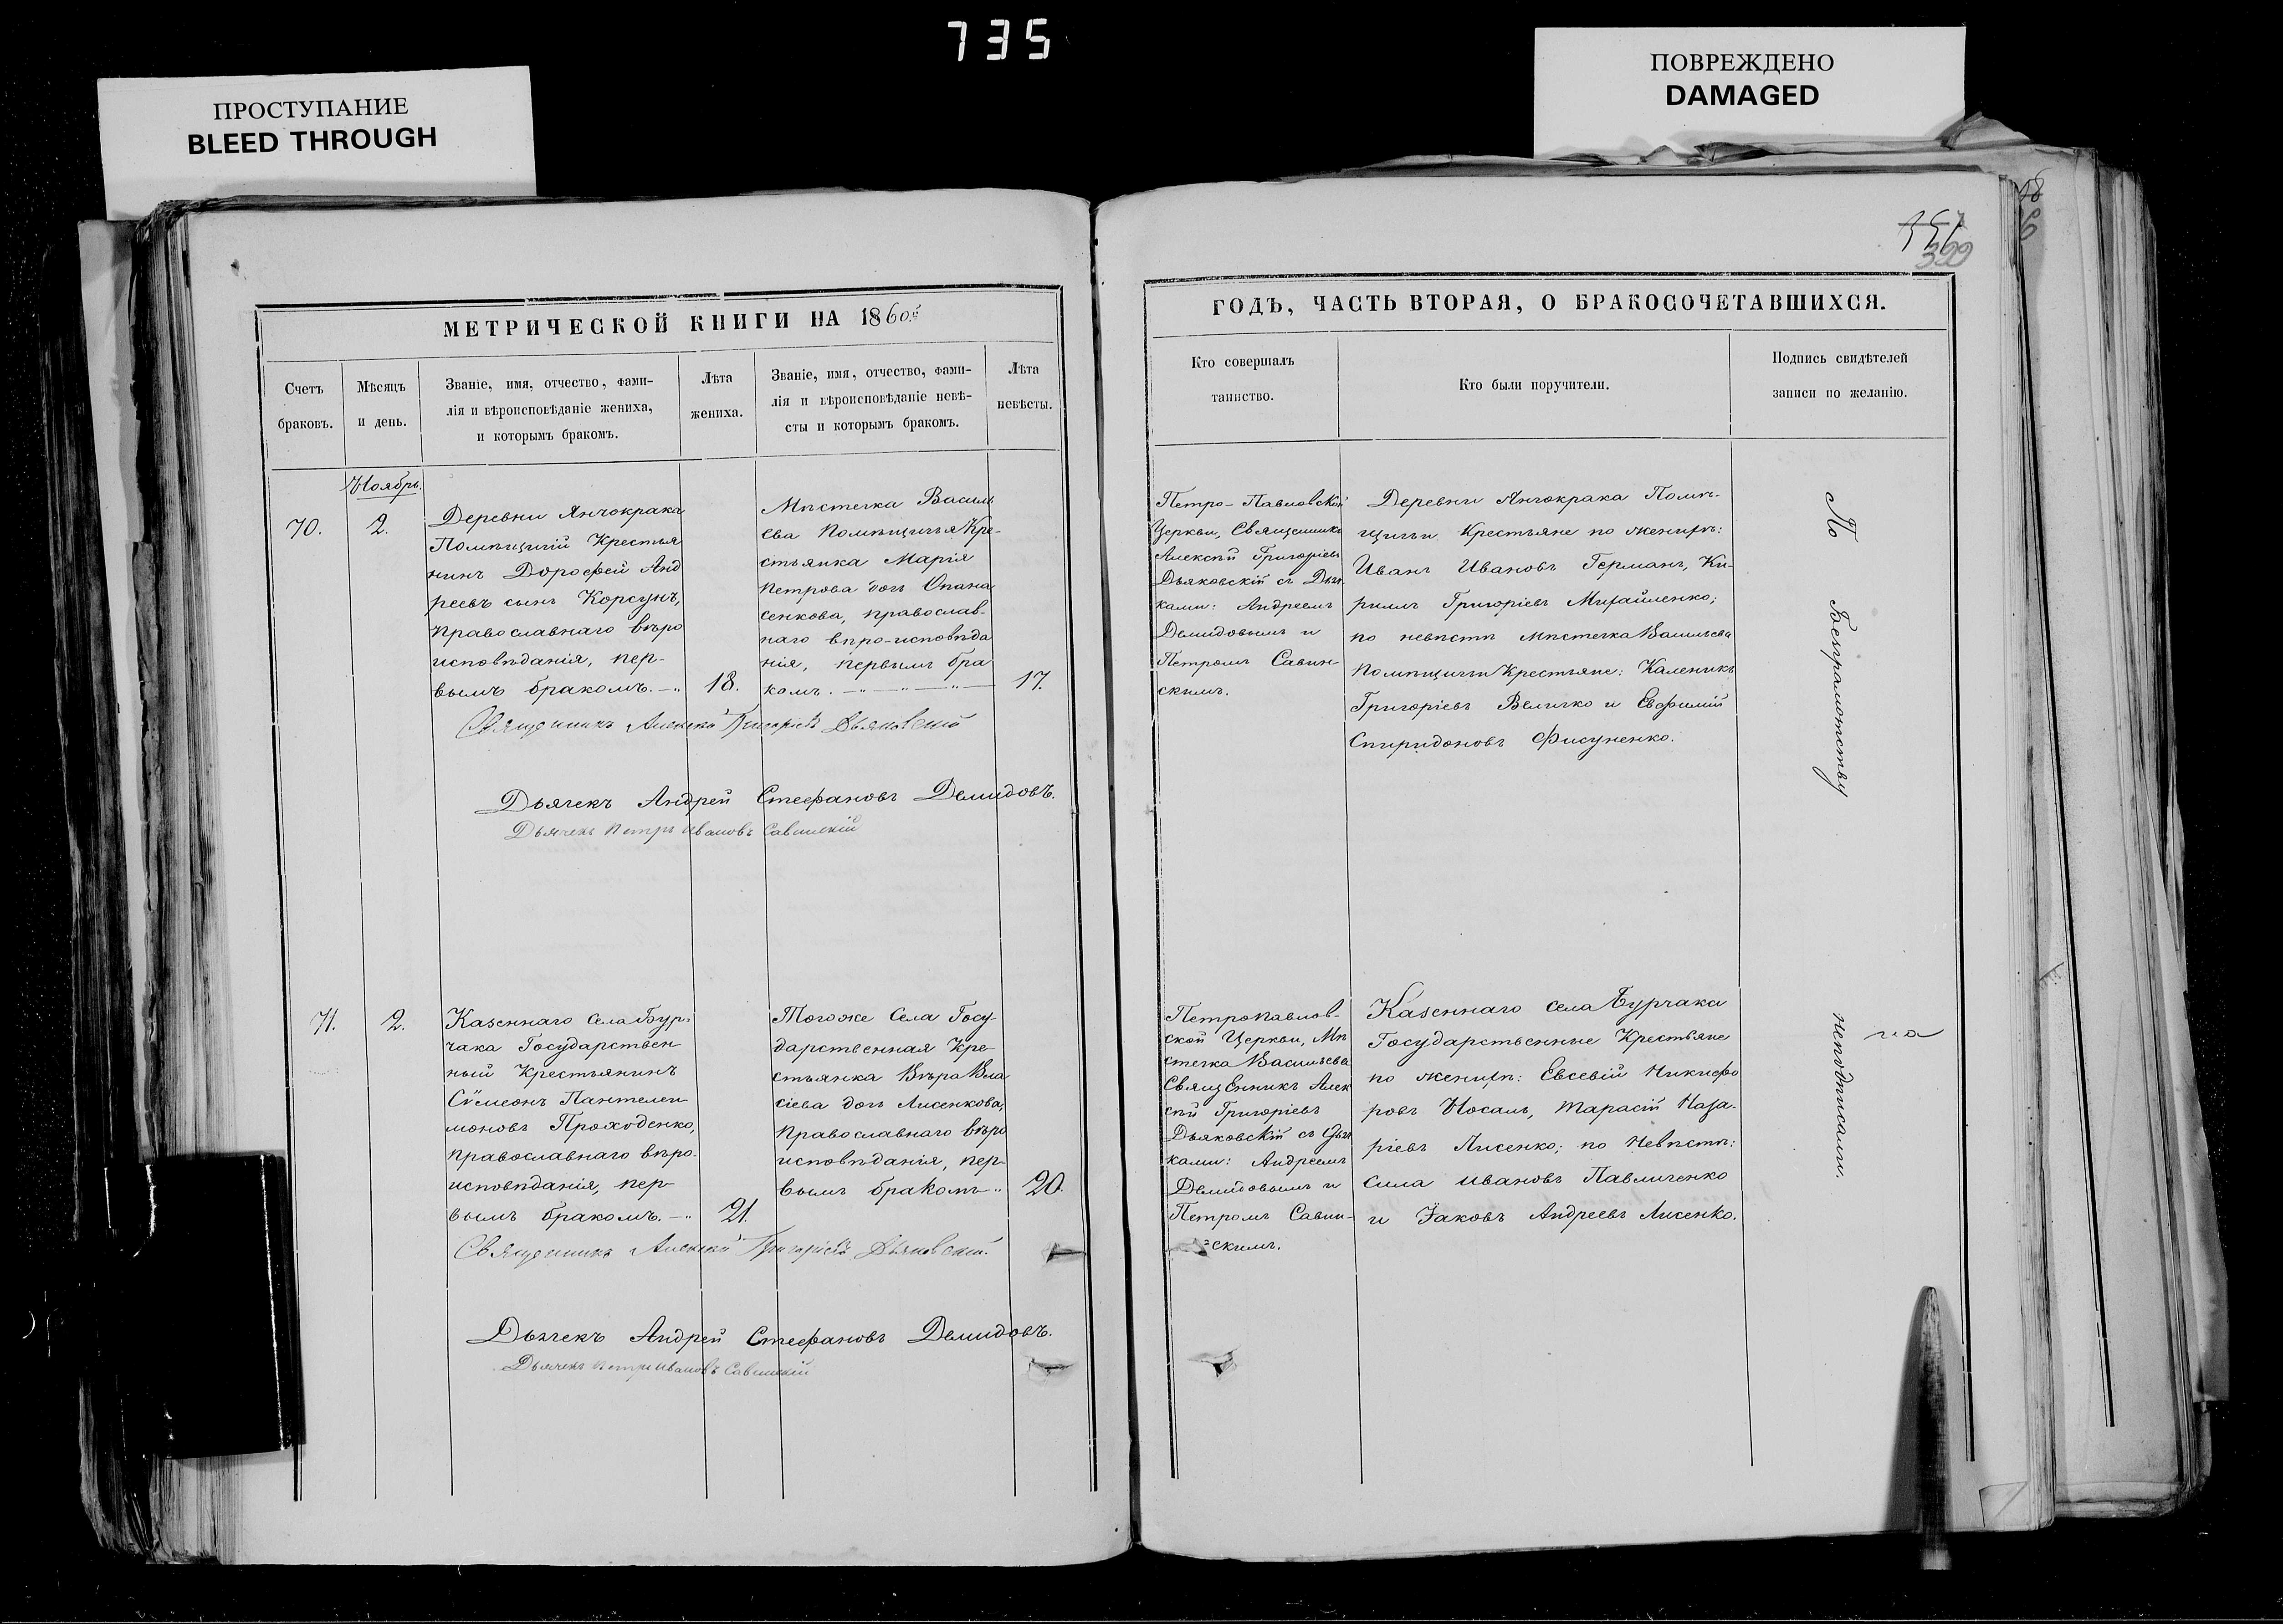 735
ПРОСТУПАНИЕ
BLEED THROUGH
ПОВРЕЖДЕНО
DAMAGED
399
МЕТРИЧЕСКОЙ КНИГИ НА 1860й
Счетъ
браковъ.
Мѣсяцъ
и день.
Званіе, имя, отчество, фами-
лія и вѣроисповѣданіе жениха,
и которымъ бракомъ.
Лѣта
жениха.
Званіе, имя, отчество, фами-
лія и вѣроисповѣданіе невѣ-
сты и которымъ бракомъ.
Лѣта
невѣсты.
Ноябрь.
70.
2.
Деревни Янчокрака
Помѣщичій Крестья
нинъ Дорофей Анд
реевъ сынъ Корсунъ,
православнаго вѣро
исповѣданія, пер-
вымъ бракомъ. —„
18.
Мѣстечка Василь
ева Помѣщичья Кре-
стьянка Марія
Петрова доч Опана
сенкова, православ-
наго вѣро-исповѣда
нія, первымъ бра
комъ. —„—„—„—
17.
Священникъ Алексѣй Григоріевъ Дьяковскій
Дьячекъ Андрей Стефановъ Демидовъ.
Дьячекъ Петръ Ивановъ Савинскій
71.
2.
Казеннаго Села Бур-
чака Государствен-
ный Крестьянинъ
Сѵмеонъ Пантелеи
моновъ Проходенко,
православнаго вѣро-
исповѣданія, пер-
вымъ бракомъ. —„
21.
Тогоже Села Госу-
дарственная Кре-
стьянка Вѣра Вла
сіева доч Лисенкова,
православнаго вѣро
исповѣданія, пер-
вымъ бракомъ „
20.
Священникъ Алексѣй Григоріевъ Дьяковскій.
Дьячекъ Андрей Стефановъ Демидовъ.
Дьячекъ Петръ Ивановъ Савинскій
ГОДЪ, ЧАСТЬ ВТОРАЯ, О БРАКОСОЧЕТАВШИХСЯ.
Кто совершалъ
таинство.
Кто были поручители.
Подпись свидѣтелей
записи по желанію.
Петро-Павловской
Церкви, Священникъ
Алексѣй Григоріевъ
Дьяковскій съ Дьяч-
ками: Андреемъ
Демидовымъ и
Петромъ Савин-
скимъ.
Деревни Янчокрака Помѣ-
щичьи Крестьяне по женихѣ:
Иванъ Ивановъ Германъ, Ки-
риллъ Григоріевъ Михайленко;
по невѣстѣ Мѣстечка Васильева
Помѣщичьи Крестьяне: Каленикъ
Григоріевъ Величко и Евфимій
Спиридоновъ Фисуненко.
По Безграмотству
Петропавлов-
ской Церкви, Мѣ
стечка Васильева
Священникъ Алек
сѣй Григоріевъ
Дьяковскій съ Дьяч
ками: Андреемъ
Демидовымъ и
Петромъ Савин-
скимъ.
Казеннаго села Бурчака
Государственные Крестьяне
по женихѣ: Евсевій Никифо
ровъ Носаль, Тарасій Наза-
ріевъ Лисенко; по невѣстѣ:
Сила Ивановъ Павличенко
и Іаковъ Андреевъ Лисенко.
неподписали.